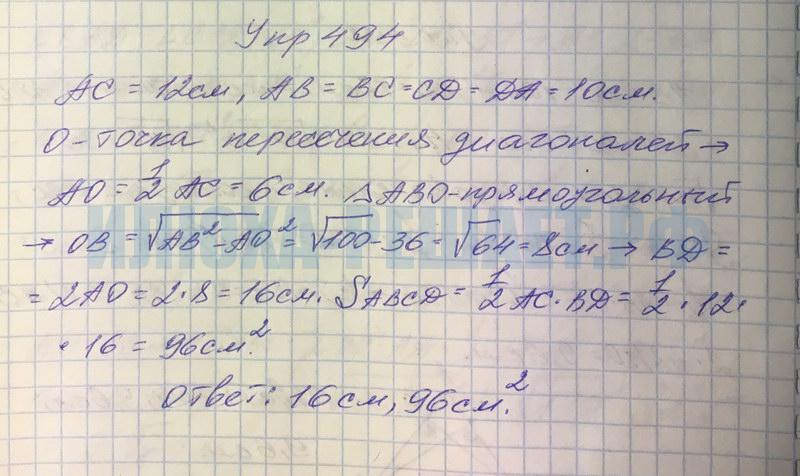 Упр 494
AC = 12см, AB = BC = CD = DA = 10см.
O - точка пересечения диагоналей →
AO = 1/2 AC = 6см. △ABO - прямоугольный
→ OB = √AB² - AO² = √100 - 36 = √64 = 8см → BD =
= 2AO = 2 · 8 = 16см. SABCD = 1/2 AC · BD = 1/2 · 12 ·
· 16 = 96см².
Ответ: 16см, 96см².
ИЛЮСКА-РЕШАЕТ.РФ